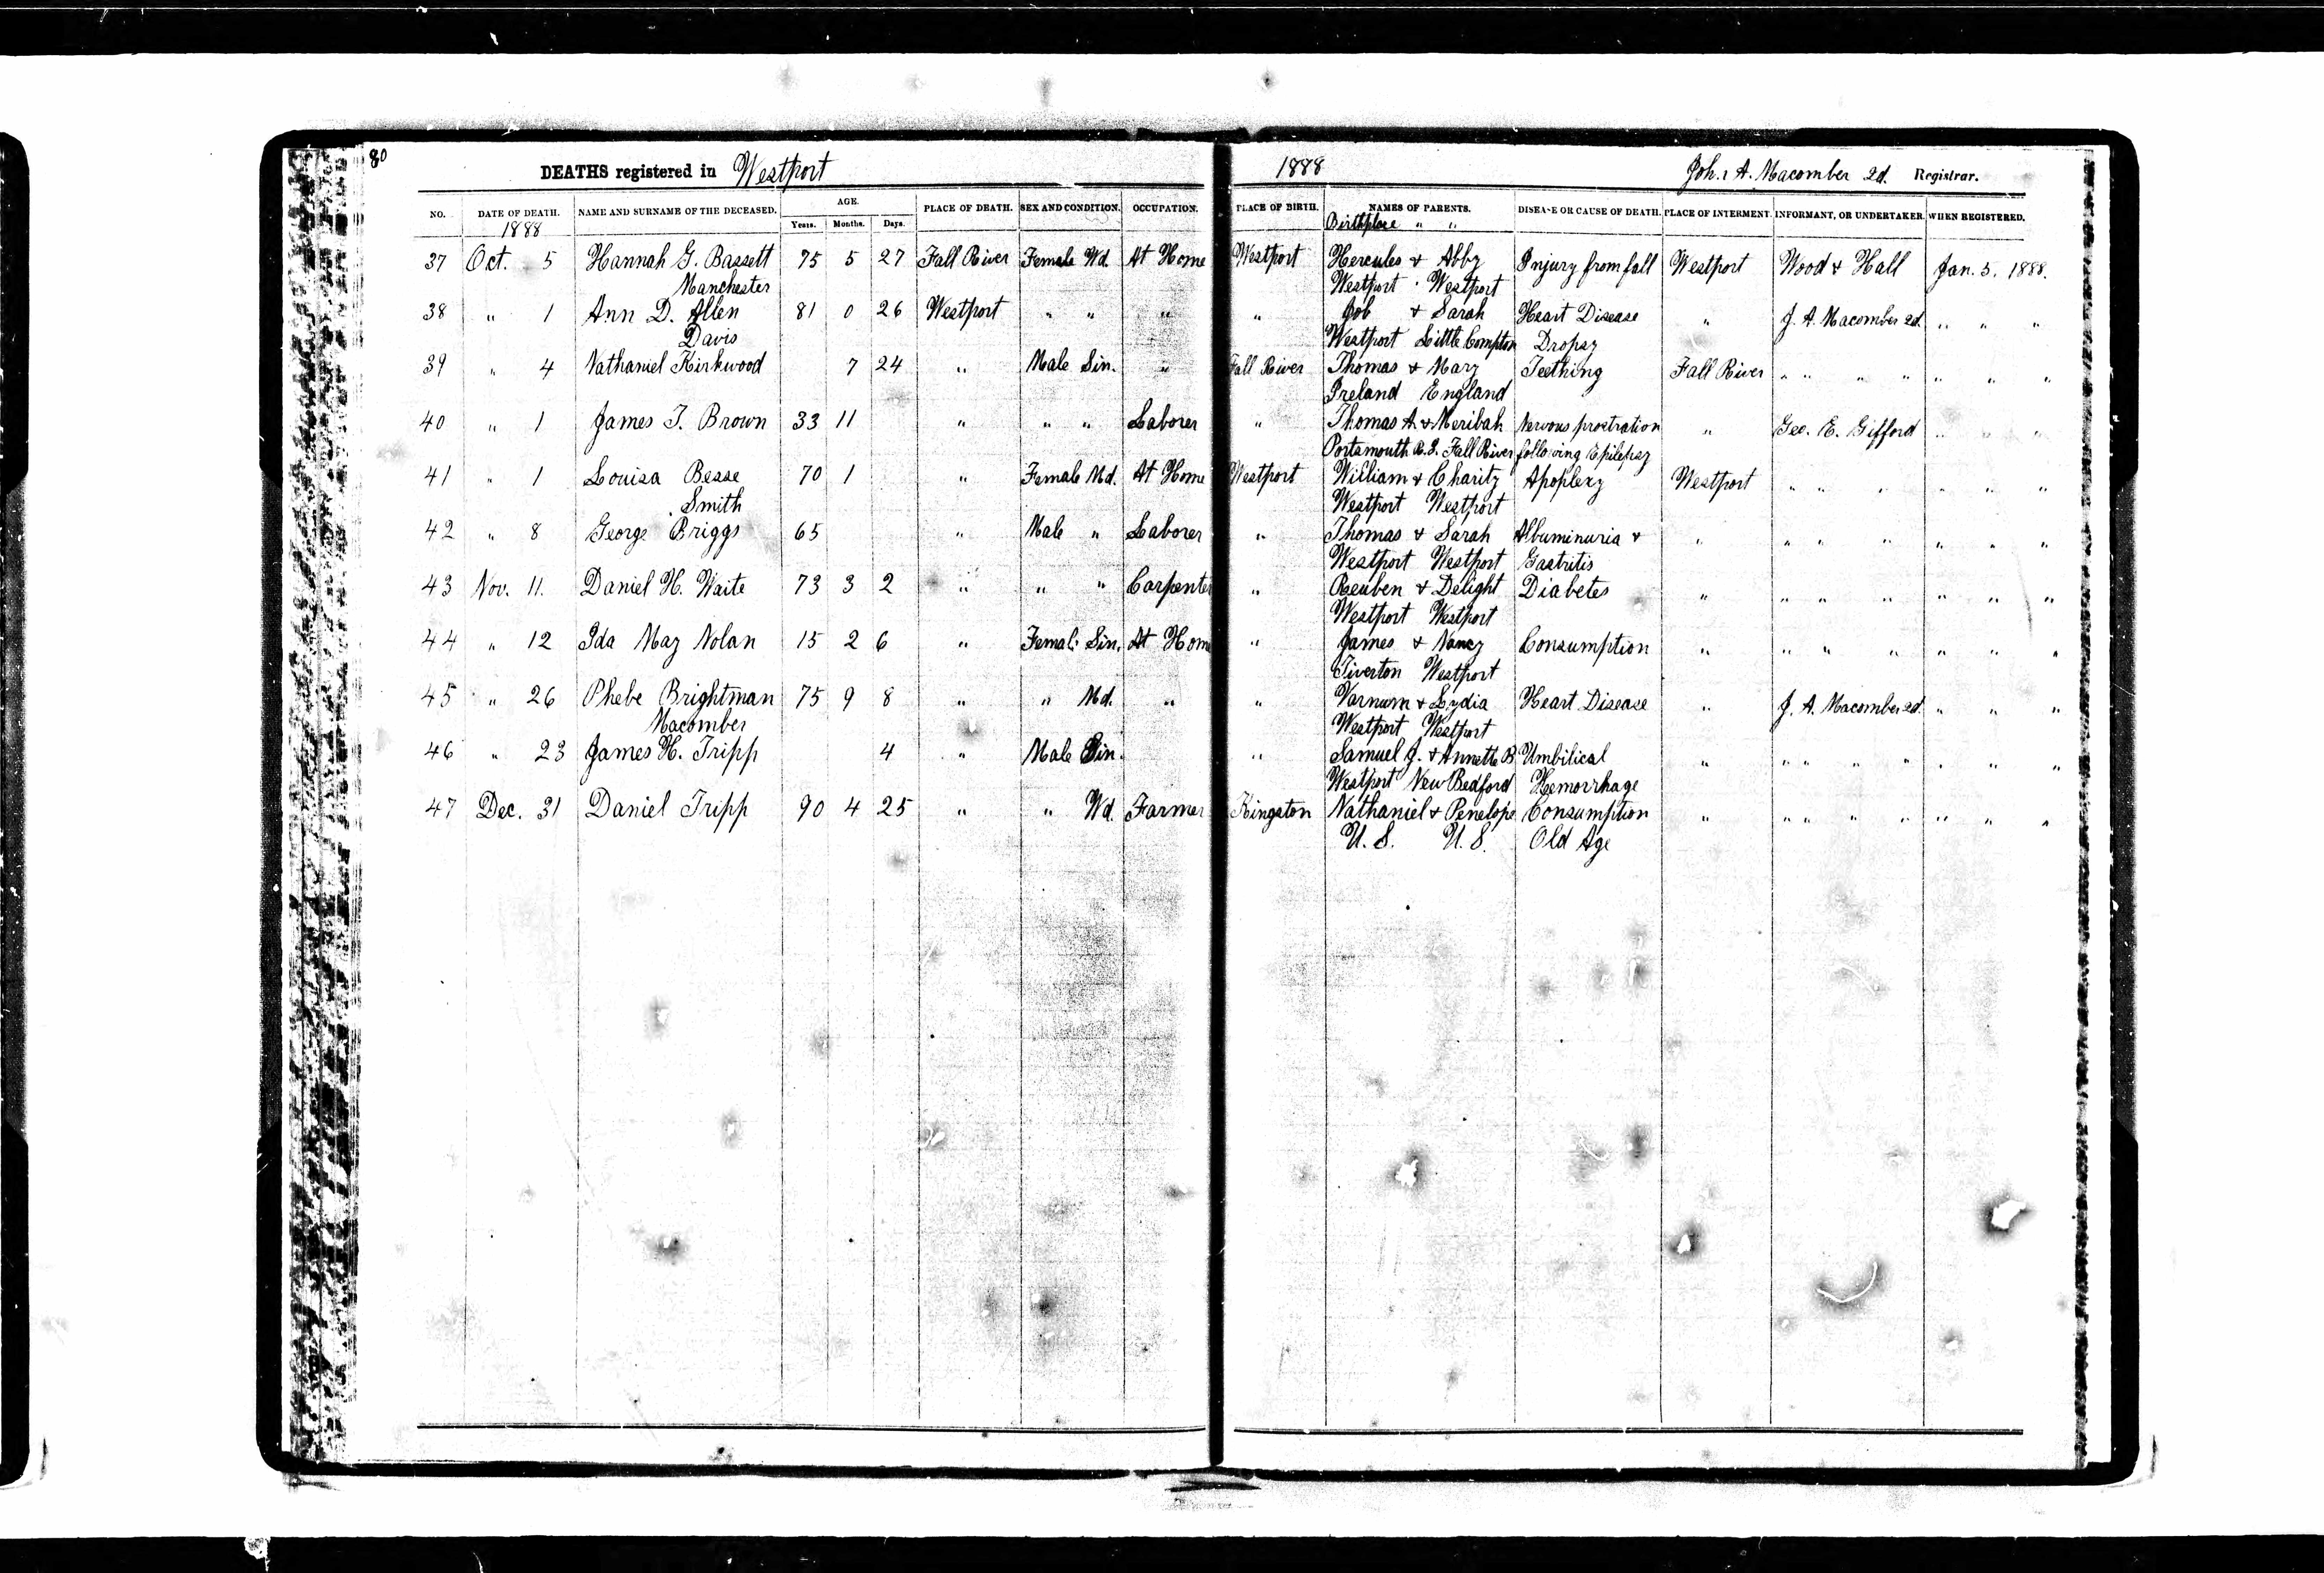 80
DEATHS registered in Westport 1888 John A. Macomber 2d. Registrar.
NO. DATE OF DEATH. NAME AND SURNAME OF THE DECEASED. AGE. PLACE OF DEATH. SEX AND CONDITION. OCCUPATION. PLACE OF BIRTH. NAMES OF PARENTS. DISEASE OR CAUSE OF DEATH. PLACE OF INTERMENT. INFORMANT, OR UNDERTAKER. WHEN REGISTERED.
1888 Years. Months. Days. Birthplace " "
37 Oct. 5 Hannah G. Bassett 75 5 27 Fall River Female Wd. At Home Westport Hercules & Abby Injury from fall Westport Wood & Hall Jan. 5. 1888.
Manchester Westport Westport
38 " 1 Ann D. Allen 81 0 26 Westport " " " " Job & Sarah Heart Disease " J. A. Macomber 2d. " " "
Davis Westport Little Compton Dropsy
39 " 4 Nathaniel Kirkwood 7 24 " Male Sin. " Fall River Thomas & Mary Teething Fall River " " " " " " "
Ireland England
40 " 1 James T. Brown 33 11 " " " Laborer " Thomas A. & Meribah Nervous prostration " Geo. E. Gifford " " "
Portsmouth R.I. Fall River following Epilepsy
41 " 1 Louisa Besse 70 1 " Female Md. At Home Westport William & Charity Apoplexy Westport " " " " " "
Smith Westport Westport
42 " 8 George Briggs 65 " Male " Laborer " Thomas & Sarah Albuminuria & " " " " " " "
Westport Westport Gastritis
43 Nov. 11. Daniel H. Waite 73 3 2 " " " Carpenter " Reuben & Delight Diabetes " " " " " " "
Westport Westport
44 " 12 Ida May Nolan 15 2 6 " Female Sin. At Home " James & Nancy Consumption " " " " " " "
Tiverton Westport
45 " 26 Phebe Brightman 75 9 8 " " Md. " " Varnum & Lydia Heart Disease " J. A. Macomber 2d. " " "
Macomber Westport Westport
46 " 23 James H. Tripp 4 " Male Sin. " Samuel J. & Annette B Umbilical " " " " " " " "
Westport New Bedford Hemorrhage
47 Dec. 31 Daniel Tripp 90 4 25 " " Wd. Farmer Kingston Nathaniel & Penelope Consumption " " " " " " " "
U. S. U. S. Old Age